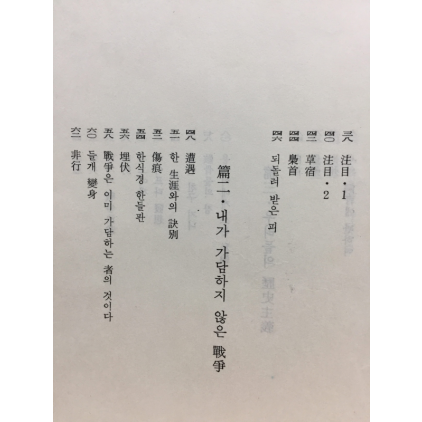 三八 注目・1
四〇 注目・2
四三 草宿
四四 梟首
四六 되돌려 받은 피
篇二・내가 가담하지 않은 戰爭
四八 遭遇
五一 한 生涯와의 訣別
五三 傷痕
五四 한식경 한들판
五六 埋伏
五八 戰爭은 이미 가담하는 者의 것이다
六〇 들개 變身
六二 非行